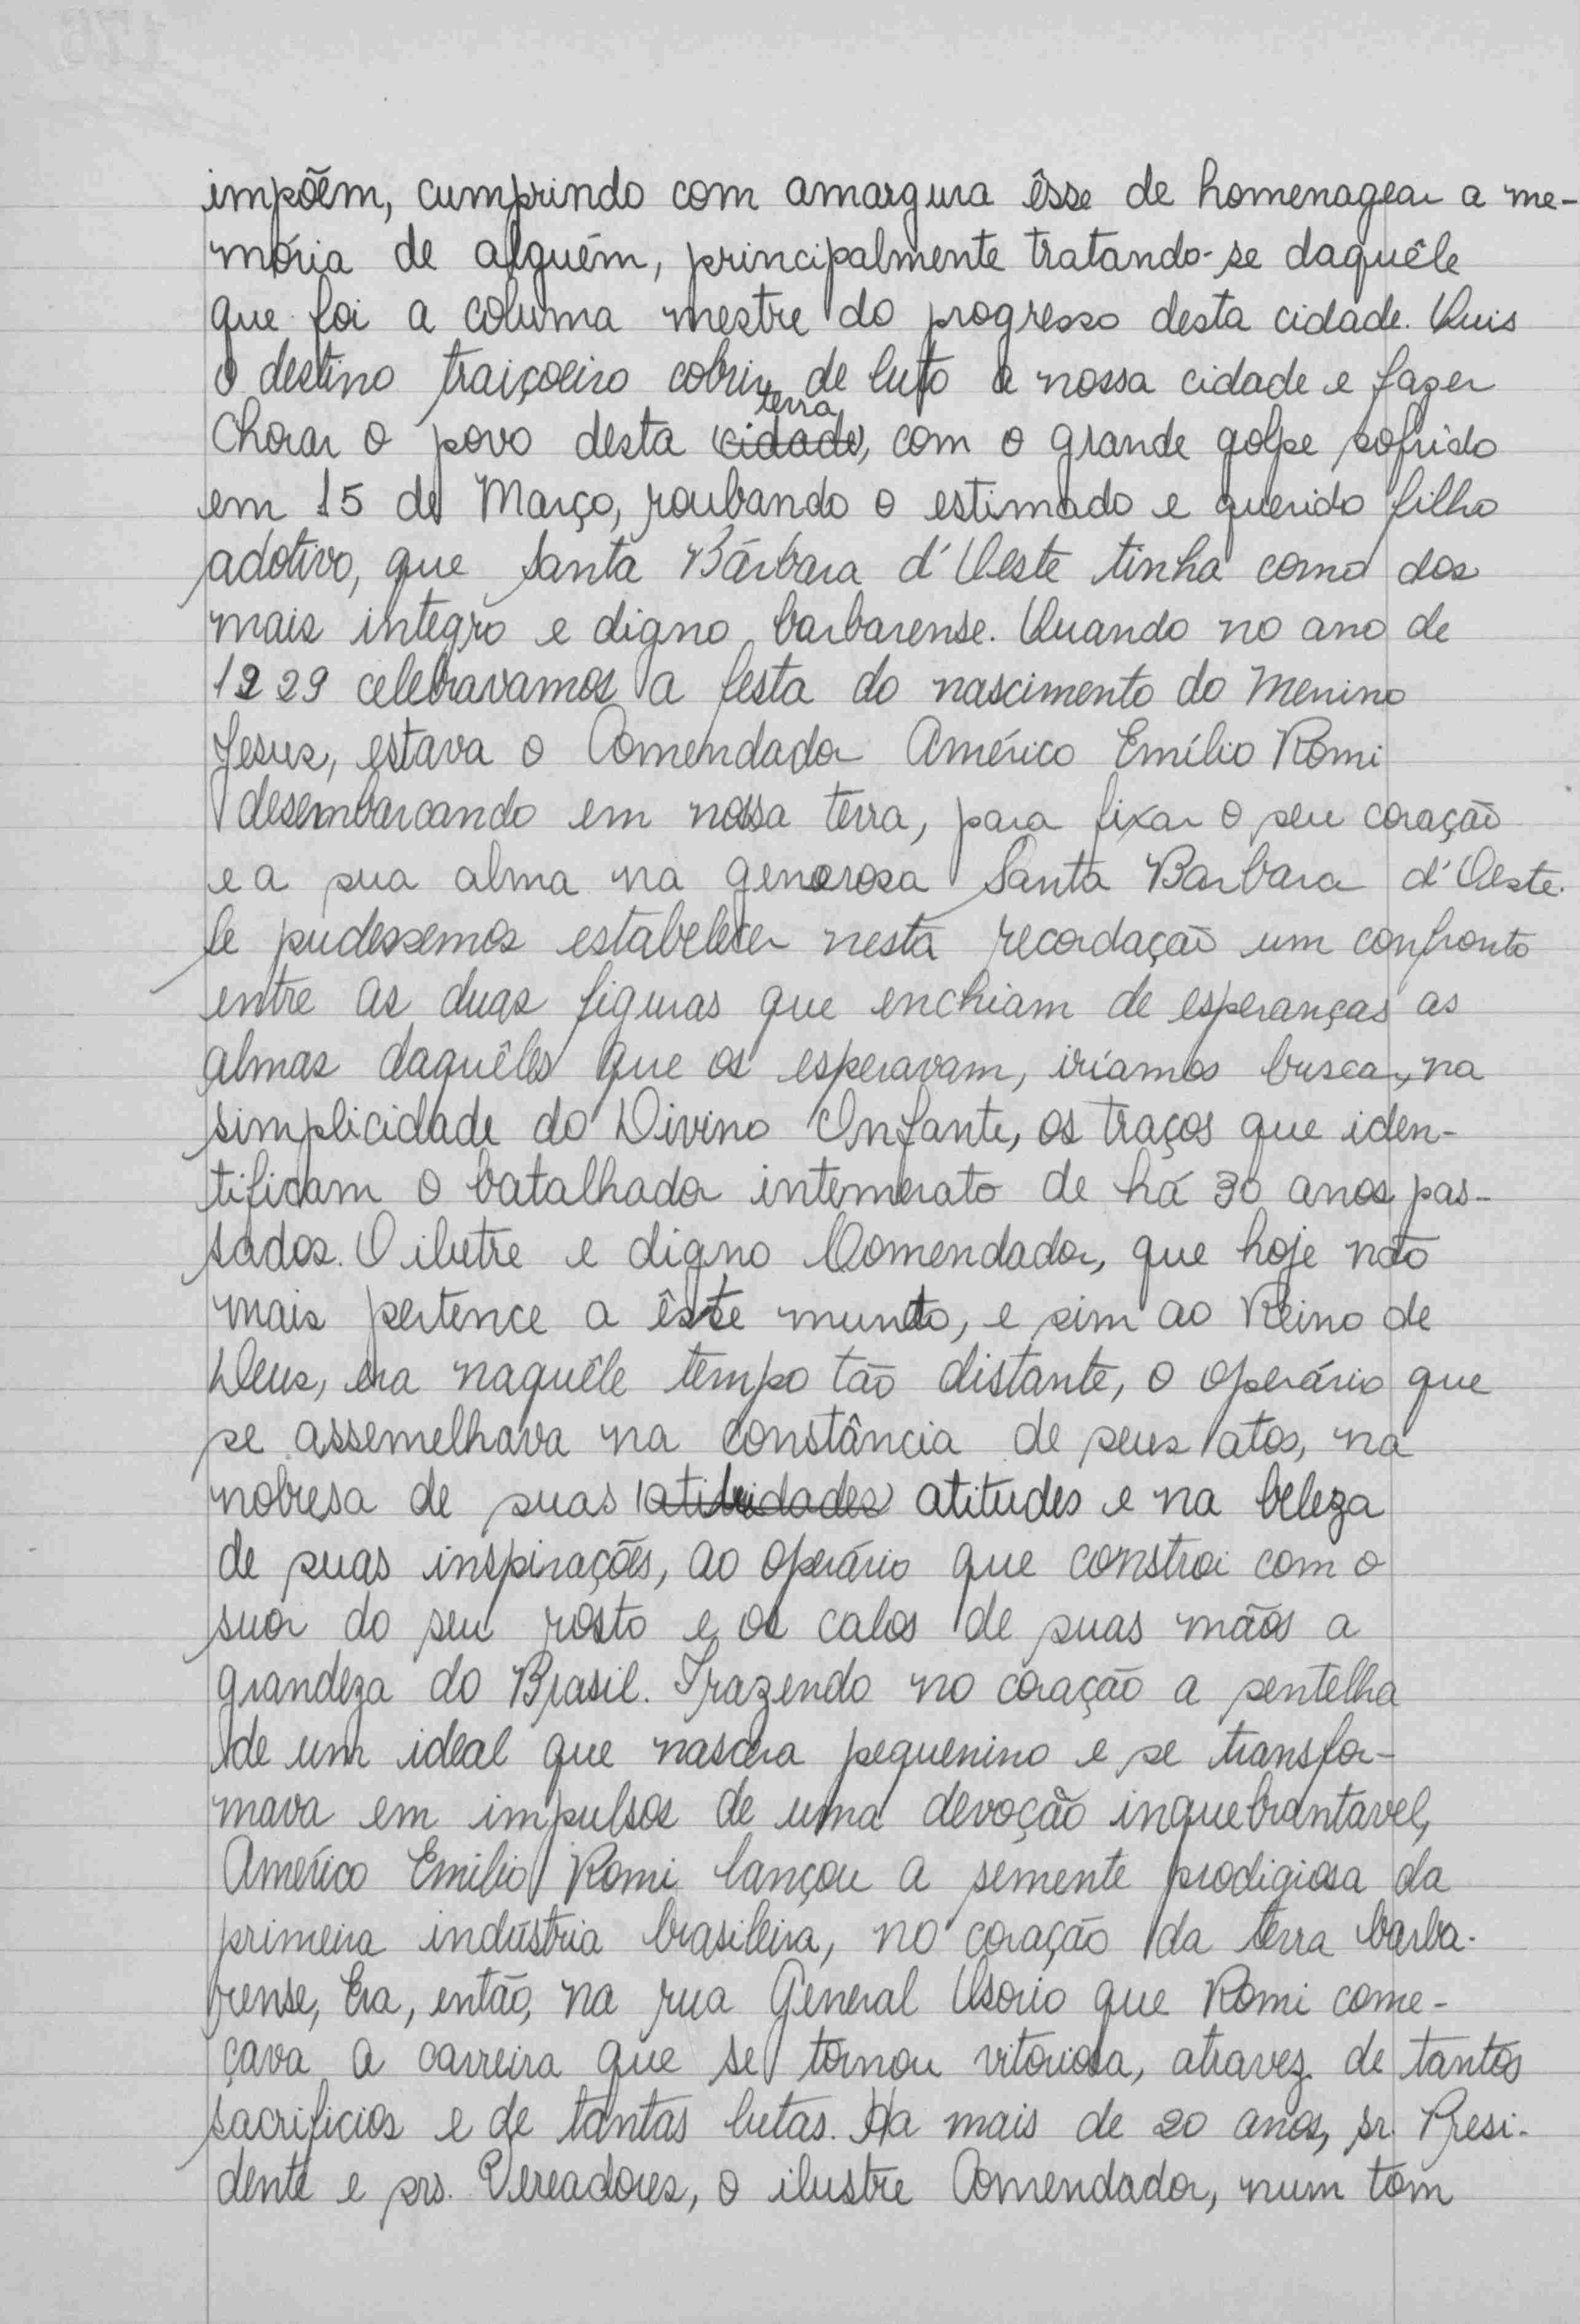 impõem, cumprindo com amargura êsse de homenagear a me-
mória de alguém, principalmente tratando-se daquêle
que foi a coluna mestre do progresso desta cidade. Quis
o destino traiçoeiro cobrir de luto a nossa cidade e fazer
terra
chorar o povo desta (cidade), com o grande golpe sofrido
em 15 de Março, roubando o estimado e querido filho
adotivo, que Santa Bárbara d'Oeste tinha como dos
mais integro e digno barbarense. Quando no ano de
1929 celebravamos a festa do nascimento do Menino
Jesus, estava o Comendador Américo Emílio Romi
desembarcando em nossa terra, para fixar o seu coração
e a sua alma na generosa Santa Barbara d'Oeste.
Se pudessemos estabelecer nesta recordação um confronto
entre as duas figuras que enchiam de esperanças as
almas daquêles que os esperavam, iríamos buscar, na
simplicidade do Divino Infante, os traços que iden-
tificam o batalhador intemerato de há 30 anos pas-
sados. O ilutre e digno Comendador, que hoje não
mais pertence a êste mundo, e sim ao Reino de
Deus, era naquêle tempo tão distante, o operário que
se assemelhava na constância de seus atos, na
nobresa de suas (atividades) atitudes e na beleza
de suas inspirações, ao operário que constroi com o
suor do seu rosto e os calos de suas mãos a
grandeza do Brasil. Trazendo no coração a sentelha
de um ideal que nascera pequenino e se transfor-
mava em impulsos de uma devoção inquebrantavel,
Américo Emílio Romi lançou a semente prodigiosa da
primeira indústria brasileira, no coração da terra barba-
rense, Era, então, na rua General Osorio que Romi come-
çava a carreira que se tornou vitoriosa, atravez de tantos
sacrificios e de tantas lutas. Ha mais de 20 anos, sr. Presi-
dente e srs. Vereadores, o ilustre Comendador, num tom